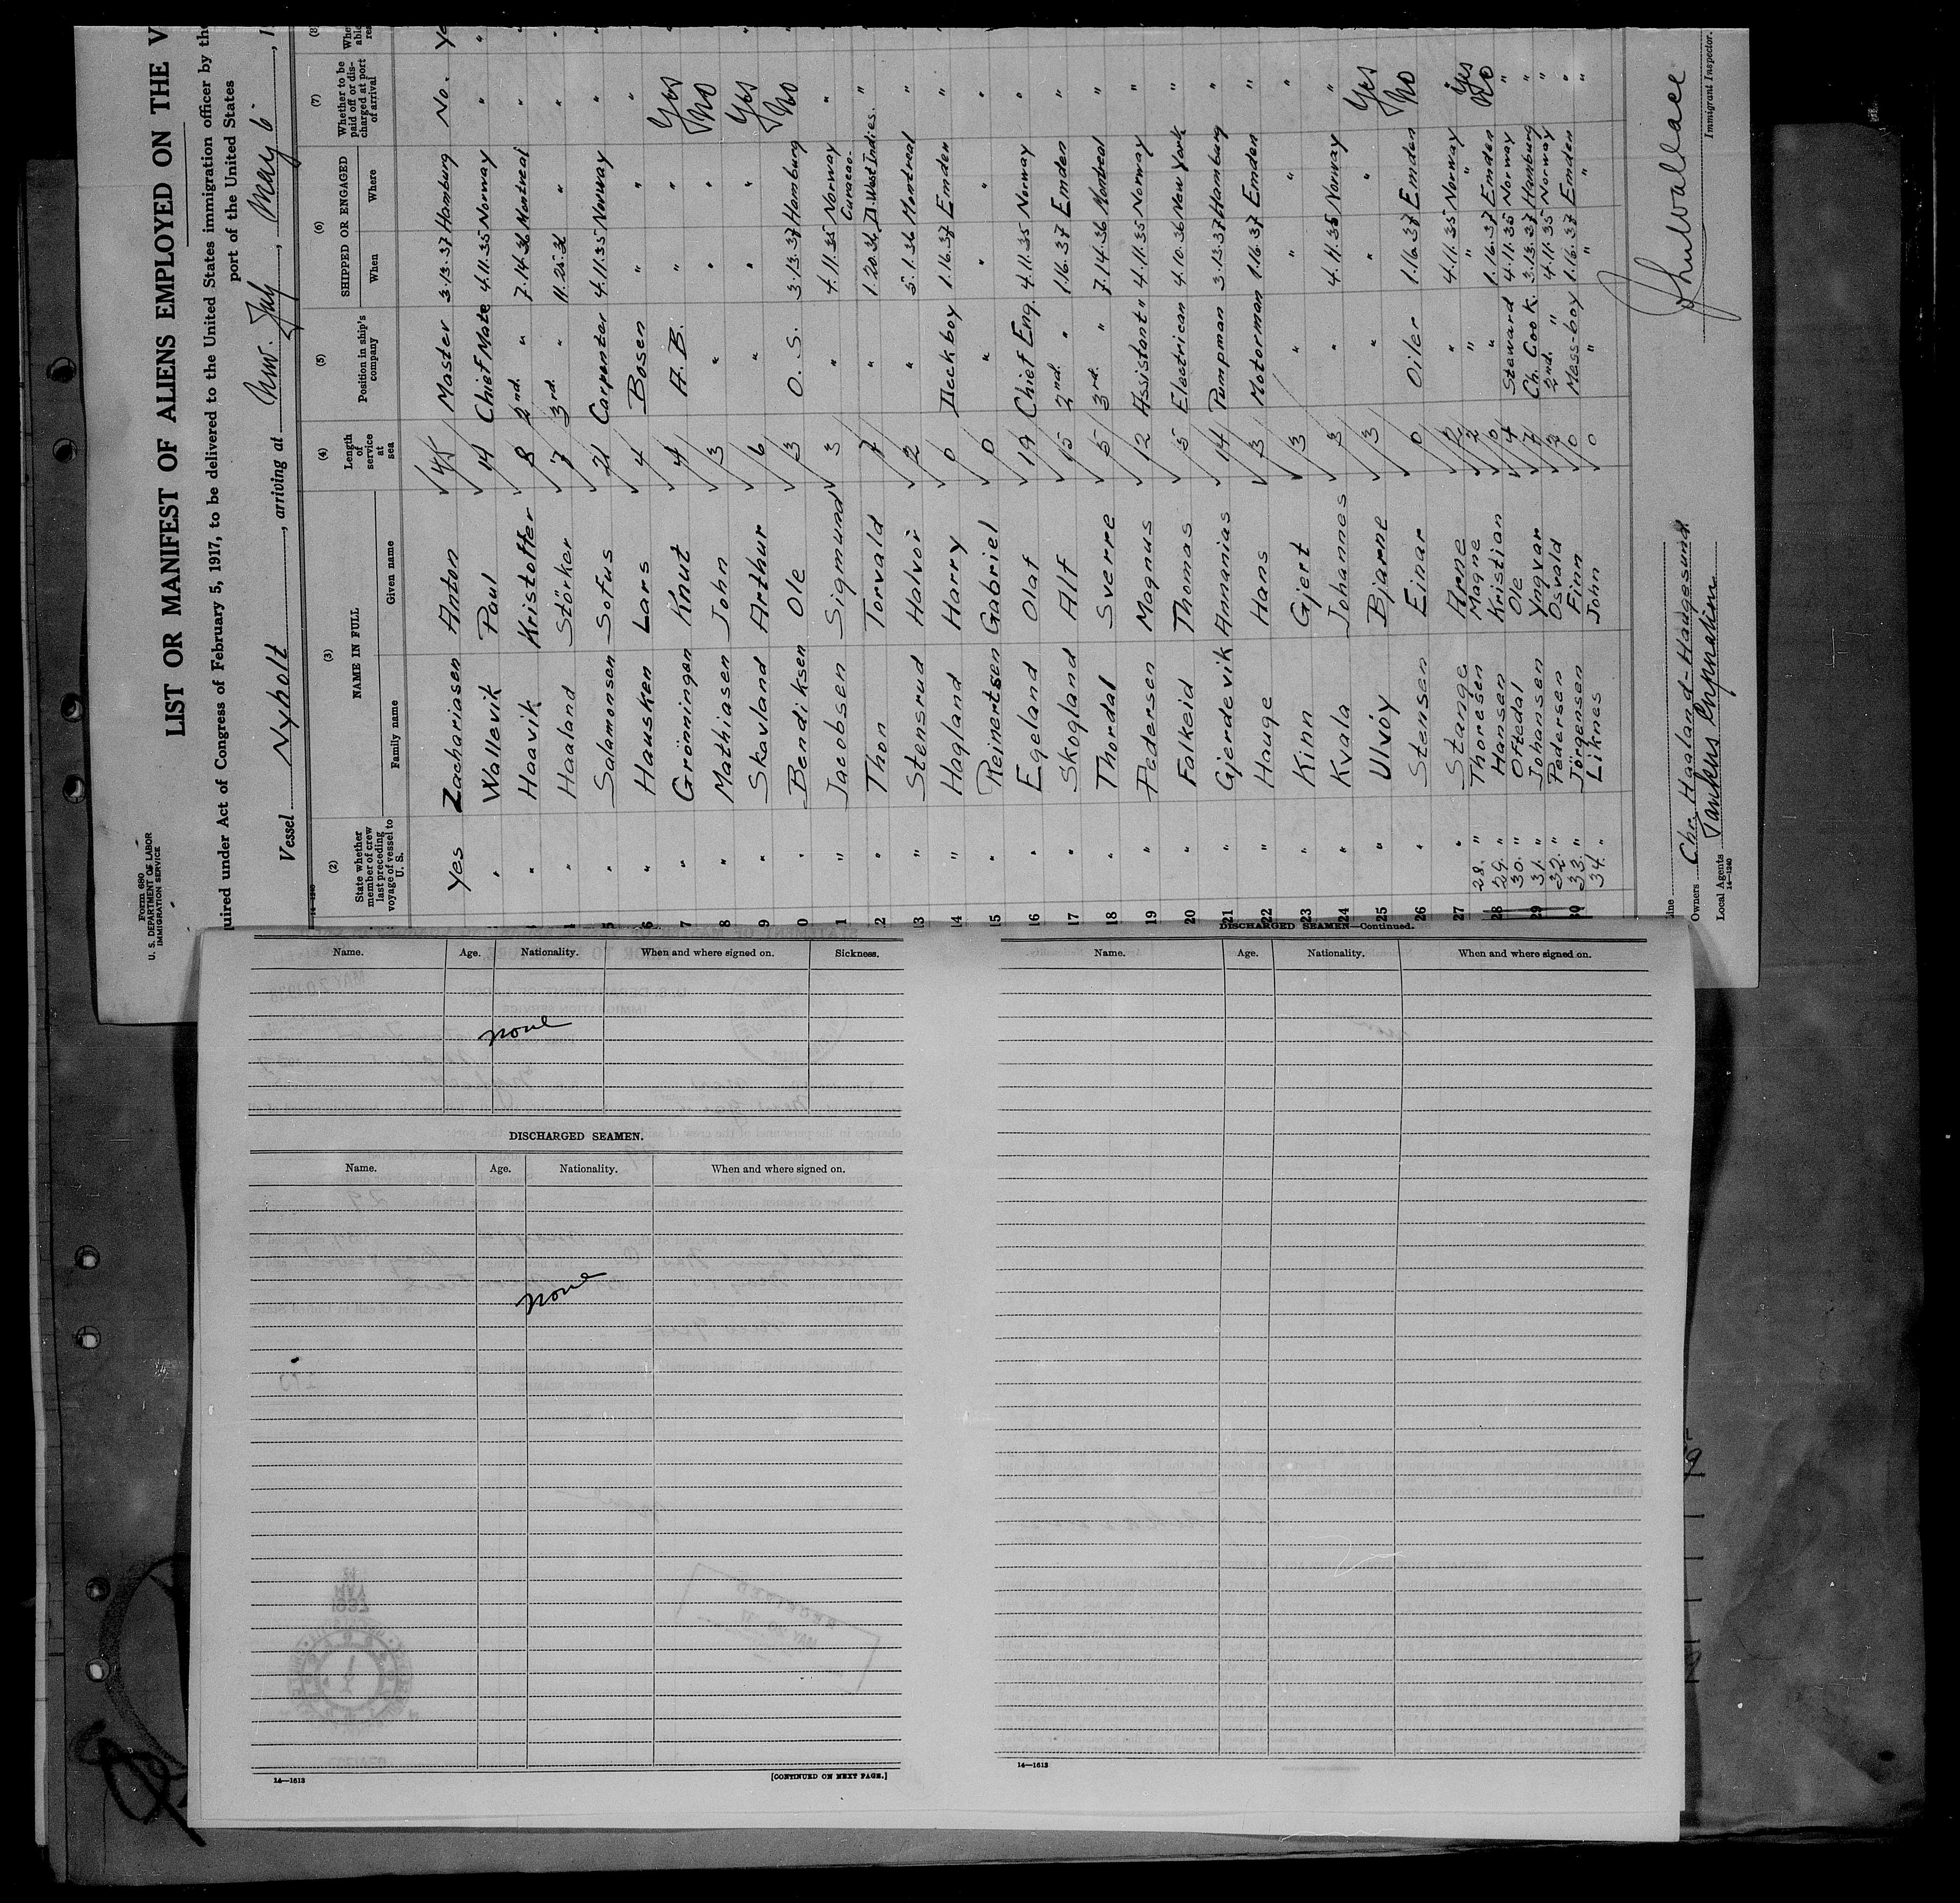 Form 680
U. S. DEPARTMENT OF LABOR
IMMIGRATION SERVICE
LIST OR MANIFEST OF ALIENS EMPLOYED ON THE V
uired under Act of Congress of February 5, 1917, to be delivered to the United States immigration officer by the
port of the United States
Vessel Nyholt, arriving at New. York, May 6
(2) (3) (4) (5) (6) (7)
State whether member of crew last preceding voyage of vessel to U. S. NAME IN FULL Family name Given name Length of service at sea Position in ship's company SHIPPED OR ENGAGED When Where Whether to be paid off or discharged at port of arrival
Yes Zachariasen Anton 45 Master 3.13.37 Hamburg No. Ye
" Wallevik Paul 14 Chief Mate 4.11.35 Norway "
" Haavik Kristoffer 8 2nd. " 7.14.36 Montreal "
4 " Haaland Störker 7 3rd. " 11.25.36 " "
5 " Salamonsen Sofus 21 Carpenter 4.11.35 Norway "
6 " Hausken Lars 4 Bosen " " "
7 " Grönningen Knut 4 A. B. " " Yes No
8 " Mathiasen John 3 " " "
9 " Skavland Arthur 6 " " " Yes
0 " Bendiksen Ole 3 O. S. 3.13.37 Hamburg No
1 " Jacobsen Sigmund 3 " 4.11.35 Norway "
2 " Thon Torvald 7 " 1.20.36 Curacao- D. West Indies. "
13 " Stensrud Halvor 2 " 5.1.36 Montreal "
14 " Hagland Harry 0 Deckboy 1.16.37 Emden "
15 " Reinertsen Gabriel 0 " " " "
16 " Egeland Olaf 19 Chief Eng. 4.11.35 Norway "
17 " Skogland Alf 15 2nd. " 1.16.37 Emden "
18 " Thordal Sverre 5 3rd. " 7.14.36 Montreal "
19 " Pedersen Magnus 12 Assistant " 4.11.35 Norway "
20 " Falkeid Thomas 5 Electrican 4.10.36 New York "
21 " Gjerdevik Annanias 14 Pumpman 3.13.37 Hamburg "
22 " Hauge Hans 3 Motorman 1.16.37 Emden "
23 " Kinn Gjert 3 " " " "
24 " Kvala Johannes 3 " 4.11.35 Norway "
25 " Ulvöy Bjarne 3 " " " Yes
26 " Stensen Einar 0 Oiler 1.16.37 Emden No
27 " Stange Arne 2 " 4.11.35 Norway "
28. " Thoresen Magne 2 " " " Yes
29. " Hansen Kristian 0 " 1.16.37 Emden No
30. " Oftedal Ole 4 Steward 4.11.35 Norway "
31. " Johansen Yngvar 7 Ch. Cook. 3.13.37 Hamburg "
32. " Pedersen Osvald 2 2nd. " 4.11.35 Norway "
33. " Jörgensen Finn 0 Mess-boy 1.16.37 Emden "
34. " Liknes John 0 " " " "
Line
Owners Chr. Haaland-Haugesund
Local Agents Tankers Corporation
14—1240
Immigrant Inspector.
Name. Age. Nationality. When and where signed on. Sickness.
none
DISCHARGED SEAMEN.
Name. Age. Nationality. When and where signed on.
none
14—1613
[CONTINUED ON NEXT PAGE.]
DISCHARGED SEAMEN—Continued.
Name. Age. Nationality. When and where signed on.
14—1613